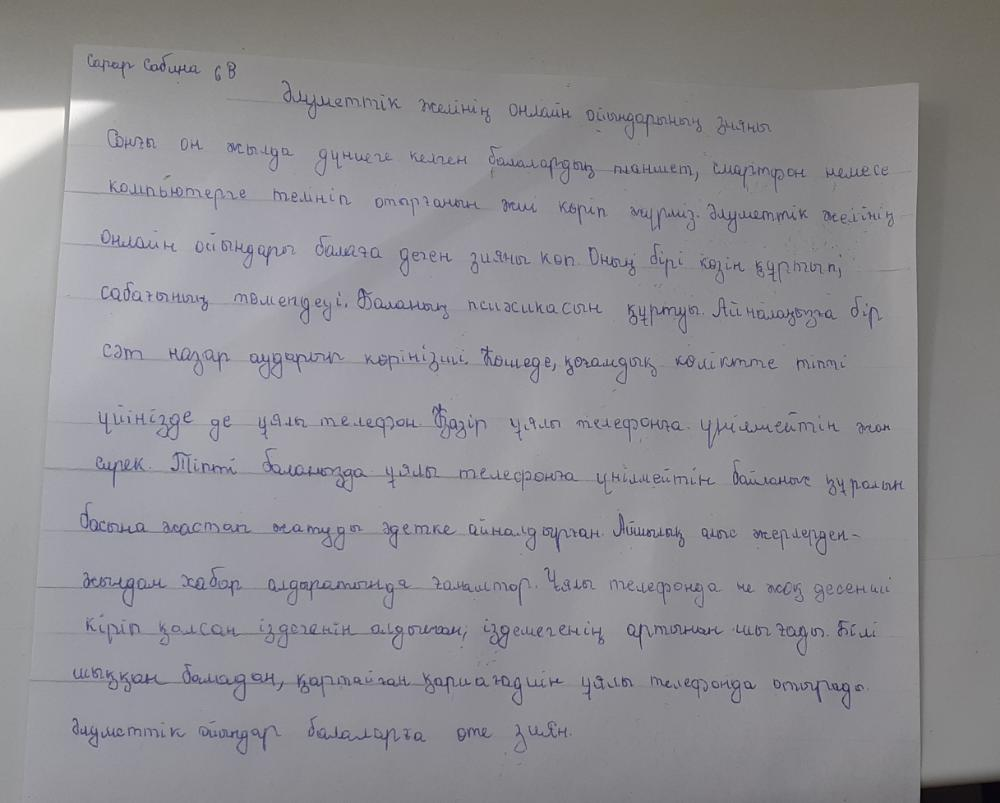 Сапар Сабина 6 В
Әлуметтік желінің онлайн ойындарының зияны
Соңғы он жылда дүниеге келген балалардың планшет, смартфон немесе
компьютерге телініп отырғанын жиі көріп жүрміз. Әлуметтік желінің
онлайн ойындары балаға деген зияны көп. Оның бірі көзін құртып,
сабағының төмендеуі. Баланың психикасын құртуы. Айналаңызға бір
сәт назар аударып көрінізші. Көшеде, қоғамдық көлікте тіпті
үйінізде де ұялы телефон. Қазір ұялы телефонға үнілмейтін жан
сирек. Тіпті баланызда ұялы телефонға үнілмейтін байланыс құралын
басына жастап жатуды әдетке айналдырған. Айшылық алыс жерлерден-
жылдам хабар алдыратында ғаламтор. Ұялы телефонда не жоқ десенші
кіріп қалсан іздегенін алдыннан, іздемегенің артынан шығады. Белі
шыққан баладан, қартайған қарияға дейін ұялы телефонда отырады.
Әлуметтік ойындар балаларға өте зиян.